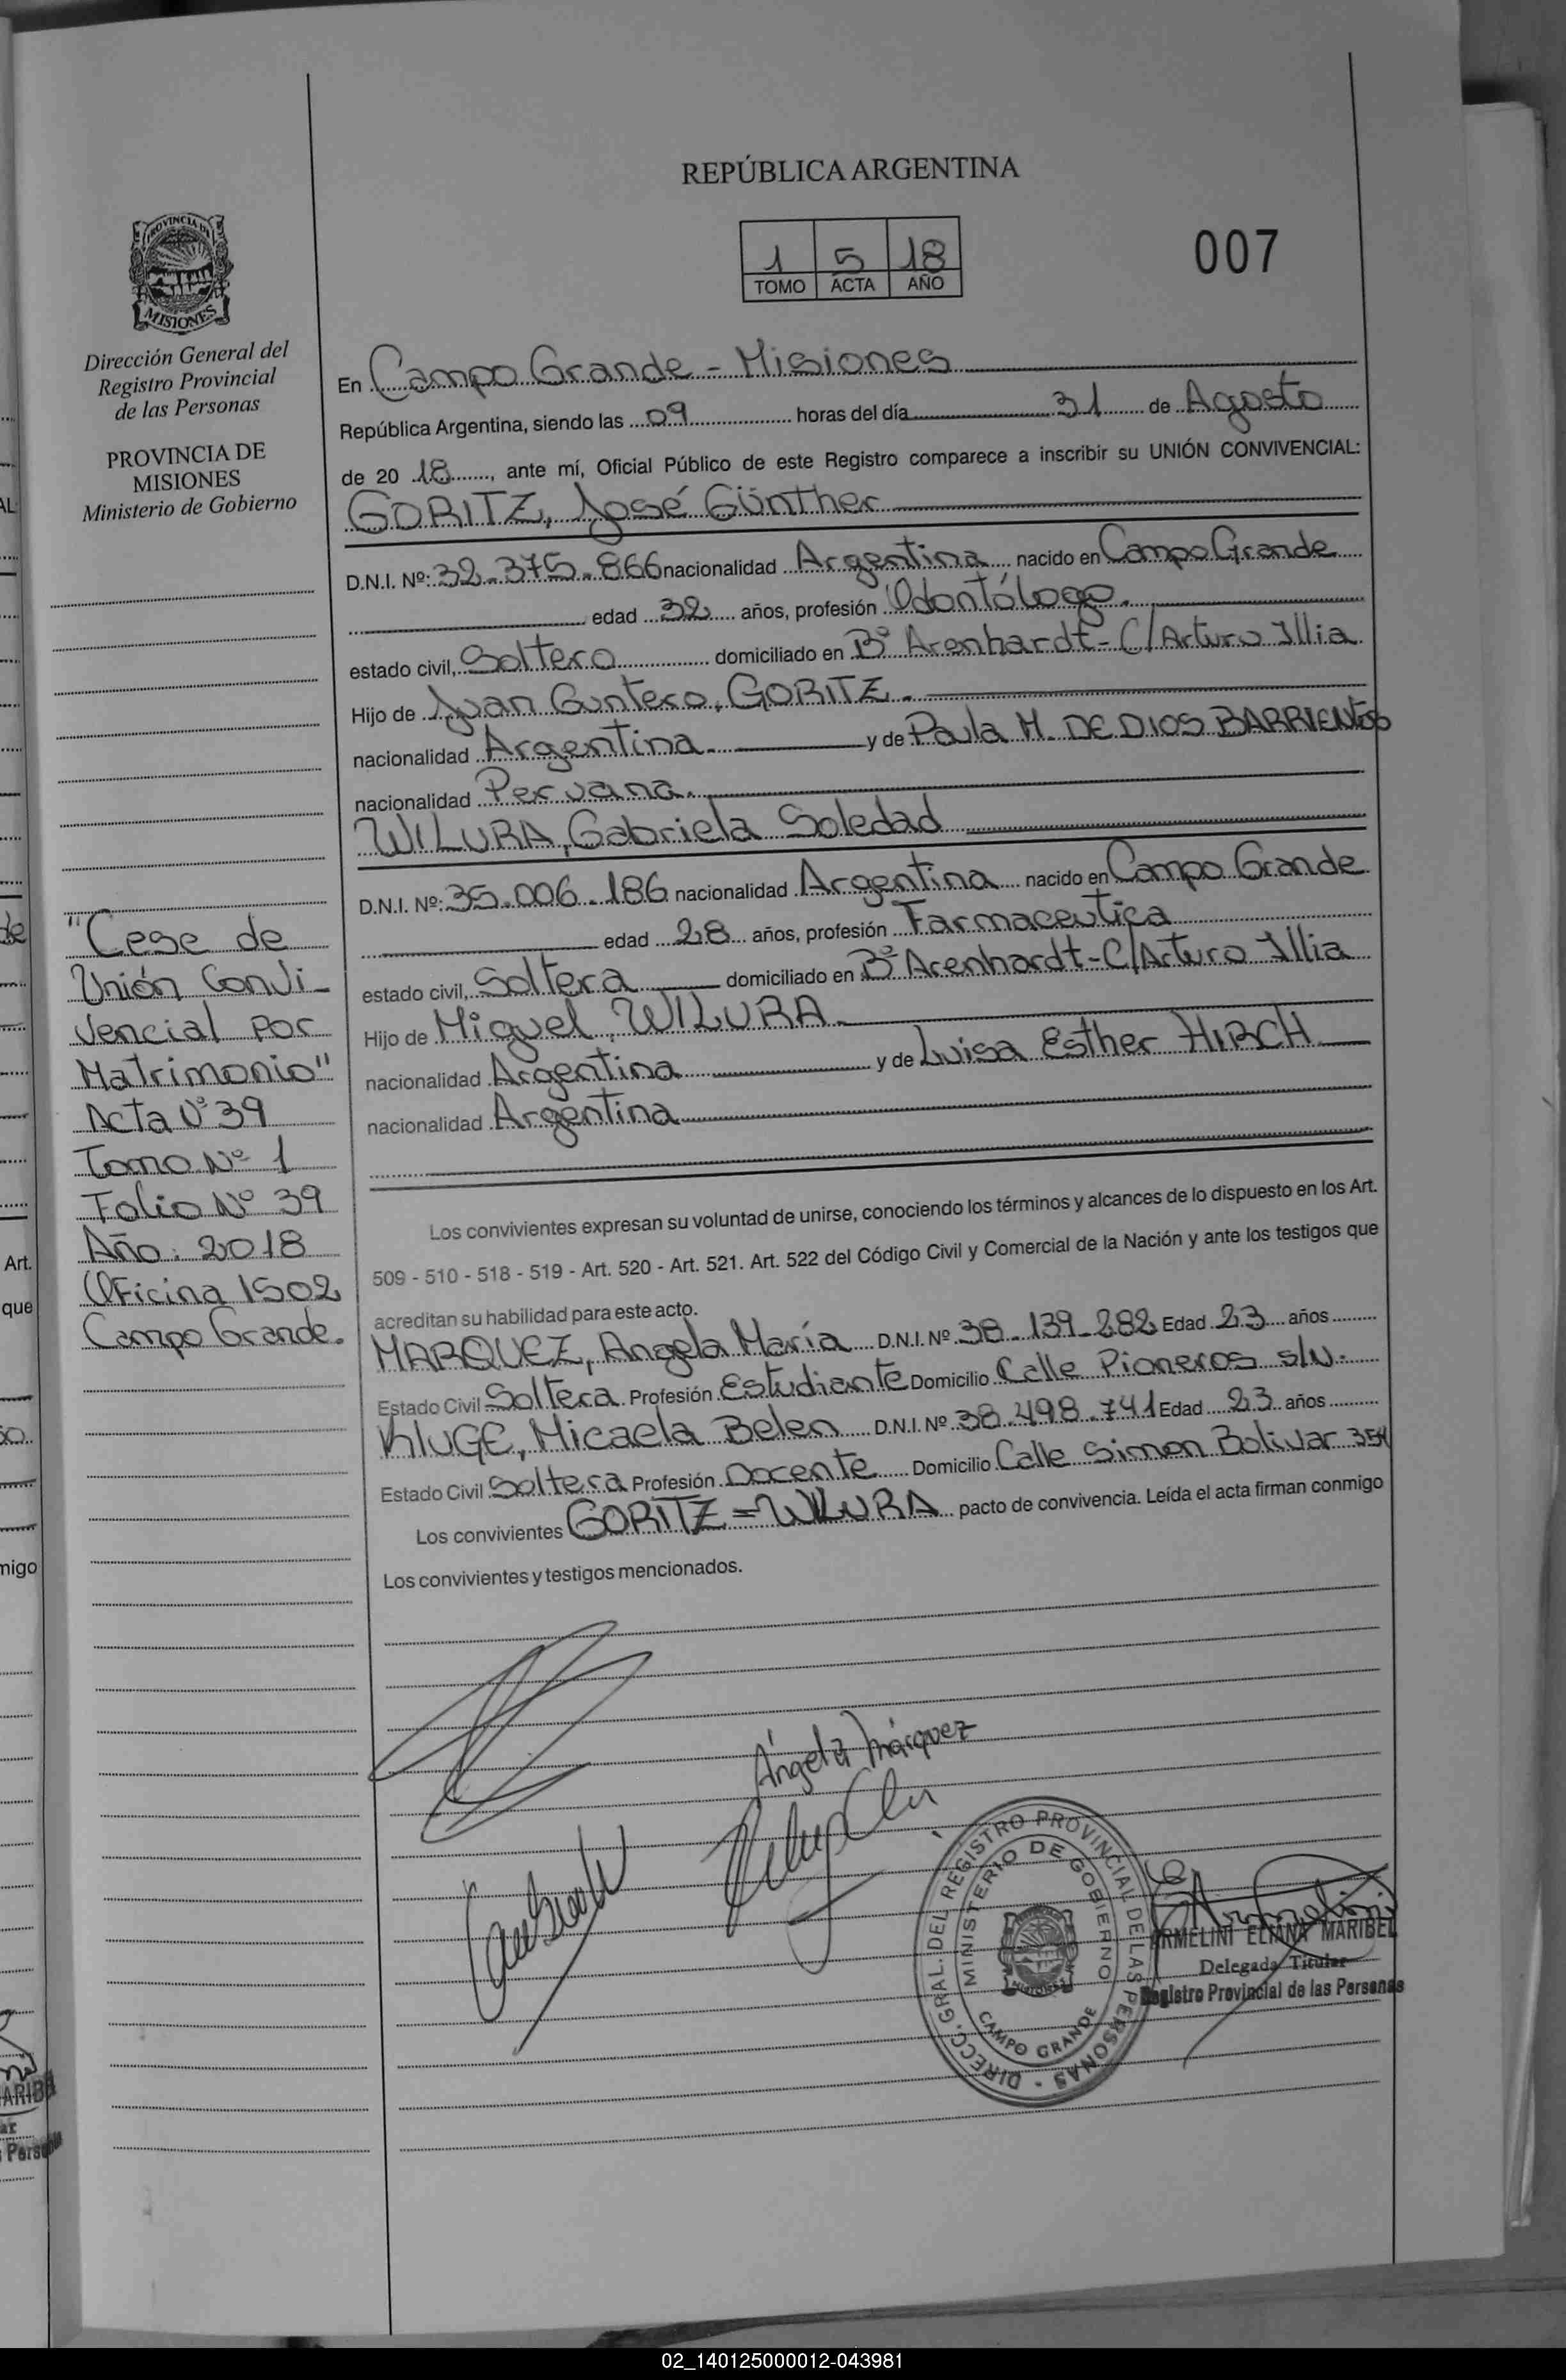 REPÚBLICA ARGENTINA
1 5 18
TOMO ACTA AÑO
007
PROVINCIA DE
MISIONES
Dirección General del
Registro Provincial
de las Personas
PROVINCIA DE
MISIONES
Ministerio de Gobierno
En Campo Grande - Misiones
República Argentina, siendo las 09 horas del día 31 de Agosto
de 20 18, ante mí, Oficial Público de este Registro comparece a inscribir su UNIÓN CONVIVENCIAL:
GORITZ, José Günther
D.N.I. Nº: 32.375.866 nacionalidad Argentina nacido en Campo Grande
edad 32 años, profesión Odontólogo.
estado civil, Soltero domiciliado en Bº Arenhardt - C/Arturo Illia
Hijo de Juan Guntero, GORITZ.
nacionalidad Argentina. y de Paula M. DE DIOS BARRIENTOS
nacionalidad Peruana.
WILURA, Gabriela Soledad
D.N.I. Nº: 35.006.186 nacionalidad Argentina nacido en Campo Grande
edad 28 años, profesión Farmaceutica
estado civil, Soltera domiciliado en Bº Arenhardt - C/Arturo Illia
Hijo de Miguel, WILURA.
nacionalidad Argentina y de Luisa Esther HIRCH
nacionalidad Argentina
Los convivientes expresan su voluntad de unirse, conociendo los términos y alcances de lo dispuesto en los Art.
509 - 510 - 518 - 519 - Art. 520 - Art. 521. Art. 522 del Código Civil y Comercial de la Nación y ante los testigos que
acreditan su habilidad para este acto.
MARQUEZ, Angela María D.N.I. Nº 38.139.282 Edad 23 años
Estado Civil Soltera Profesión Estudiante Domicilio Calle Pioneros s/N.
KluGE, Micaela Belen D.N.I. Nº 38.498.741 Edad 23 años
Estado Civil Soltera Profesión Docente Domicilio Calle Simon Bolivar 354
Los convivientes GORITZ = WILURA pacto de convivencia. Leída el acta firman conmigo
Los convivientes y testigos mencionados.
"Cese de
Unión Convi-
vencial por
Matrimonio"
Acta Nº 39
Tomo Nº 1
Folio Nº 39
Año: 2018
Oficina 1502
Campo Grande.
Ángela Márquez
DIRECC. GRAL. DEL REGISTRO PROVINCIAL DE LAS PERSONAS -
MINISTERIO DE GOBIERNO
CAMPO GRANDE
ARMELINI ELIANA MARIBEL
Delegada Titular
Registro Provincial de las Personas
02_140125000012-043981